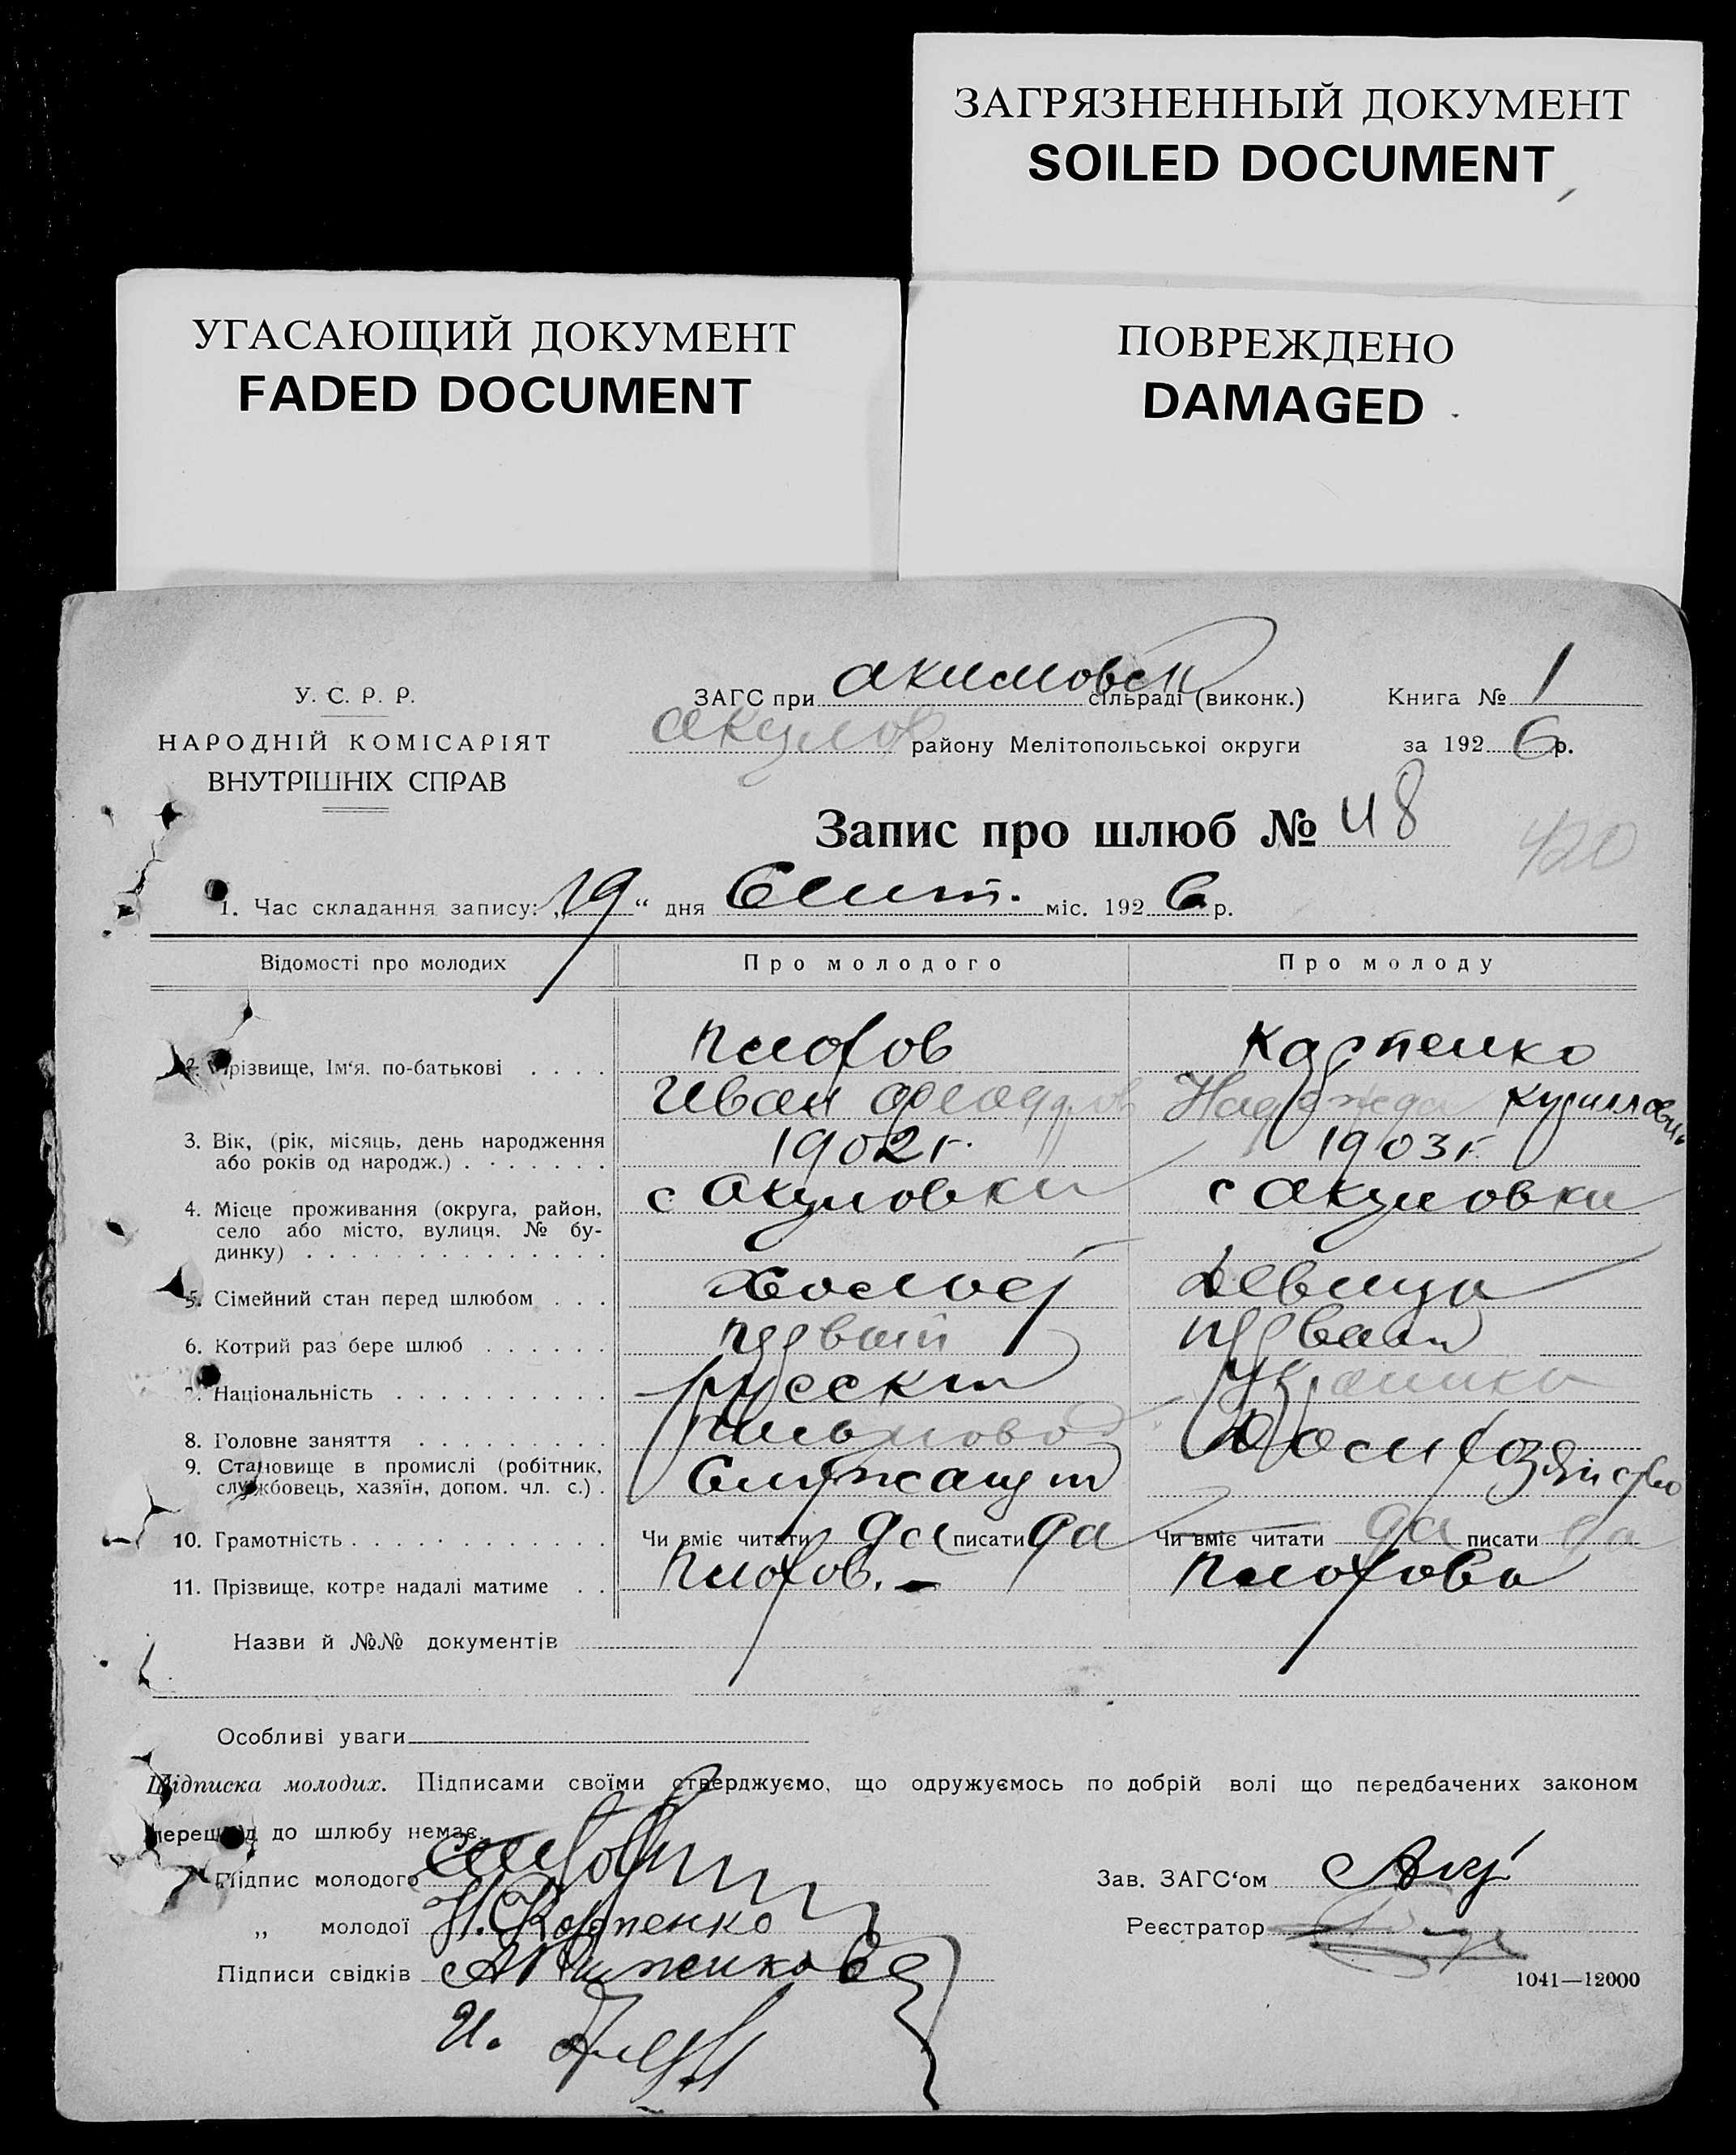 ЗАГРЯЗНЕННЫЙ ДОКУМЕНТ
SOILED DOCUMENT
УГАСАЮЩИЙ ДОКУМЕНТ
FADED DOCUMENT
ПОВРЕЖДЕНО
DAMAGED
У. С. Р. Р.
НАРОДНІЙ КОМІСАРІЯТ
ВНУТРІШНІХ СПРАВ
ЗАГС при Акимовск сільраді (виконк.)
району Мелітопольської округи
Книга № 1
за 1926 р.
Запис про шлюб № 48
420
1. Час складання запису: „19“ дня Сент. міс. 1926 р.
Відомості про молодих Про молодого Про молоду
2. Прізвище, Ім‘я. по-батькові Плохов Карпенко
Иван Надежда Кириловн
3. Вік, (рік, місяць, день народження 1902 г. 1903 г.
або років од народж.)
4. Місце проживання (округа, район, с Акимовки с Акимовки
село або місто, вулиця. № бу-
динку)
5. Сімейний стан перед шлюбом Холост Девица
6. Котрий раз бере шлюб первый первый
7. Національність русский
8. Головне заняття
9. Становище в промислі (робітник, Служащий
службовець, хазяїн, допом. чл. с.)
10. Грамотність Чи вміє читати да писати да Чи вміє читати да писати да
11. Прізвище, котре надалі матиме Плохов. Плохова
Назви й №№ документів
Особливі уваги
Підписка молодих. Підписами своїми стверджуємо, що одружуємось по добрій волі що передбачених законом
перешкод до шлюбу немає.
Підпис молодого
„ молодої Н. Карпенко
Підписи свідків
И.
Зав. ЗАГС‘ом
Реєстратор
1041—12000